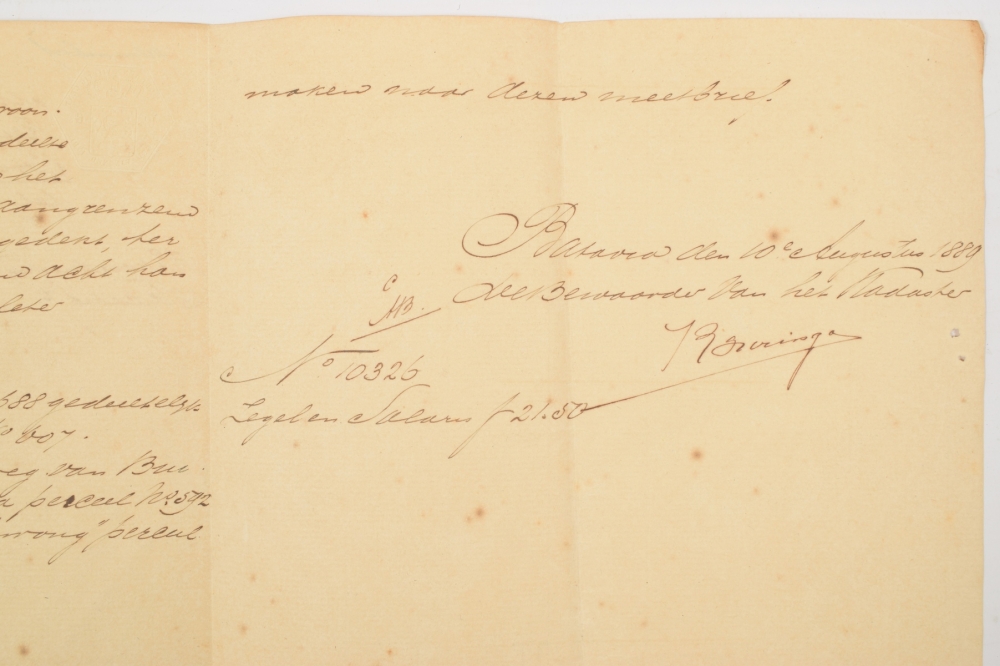 deelte
het
aangrenzend
gedekt, ter
acht hon
leter
688 gedeeltelijk
No 607.
weg van Bui.
perceel No 592
wong" perceel
maken naar dezen meetbrief.
Batavia den 10e Augustus 1889
de Bewaarder van het Kadaster
No 10326
Zegel en Salaris f 21.50